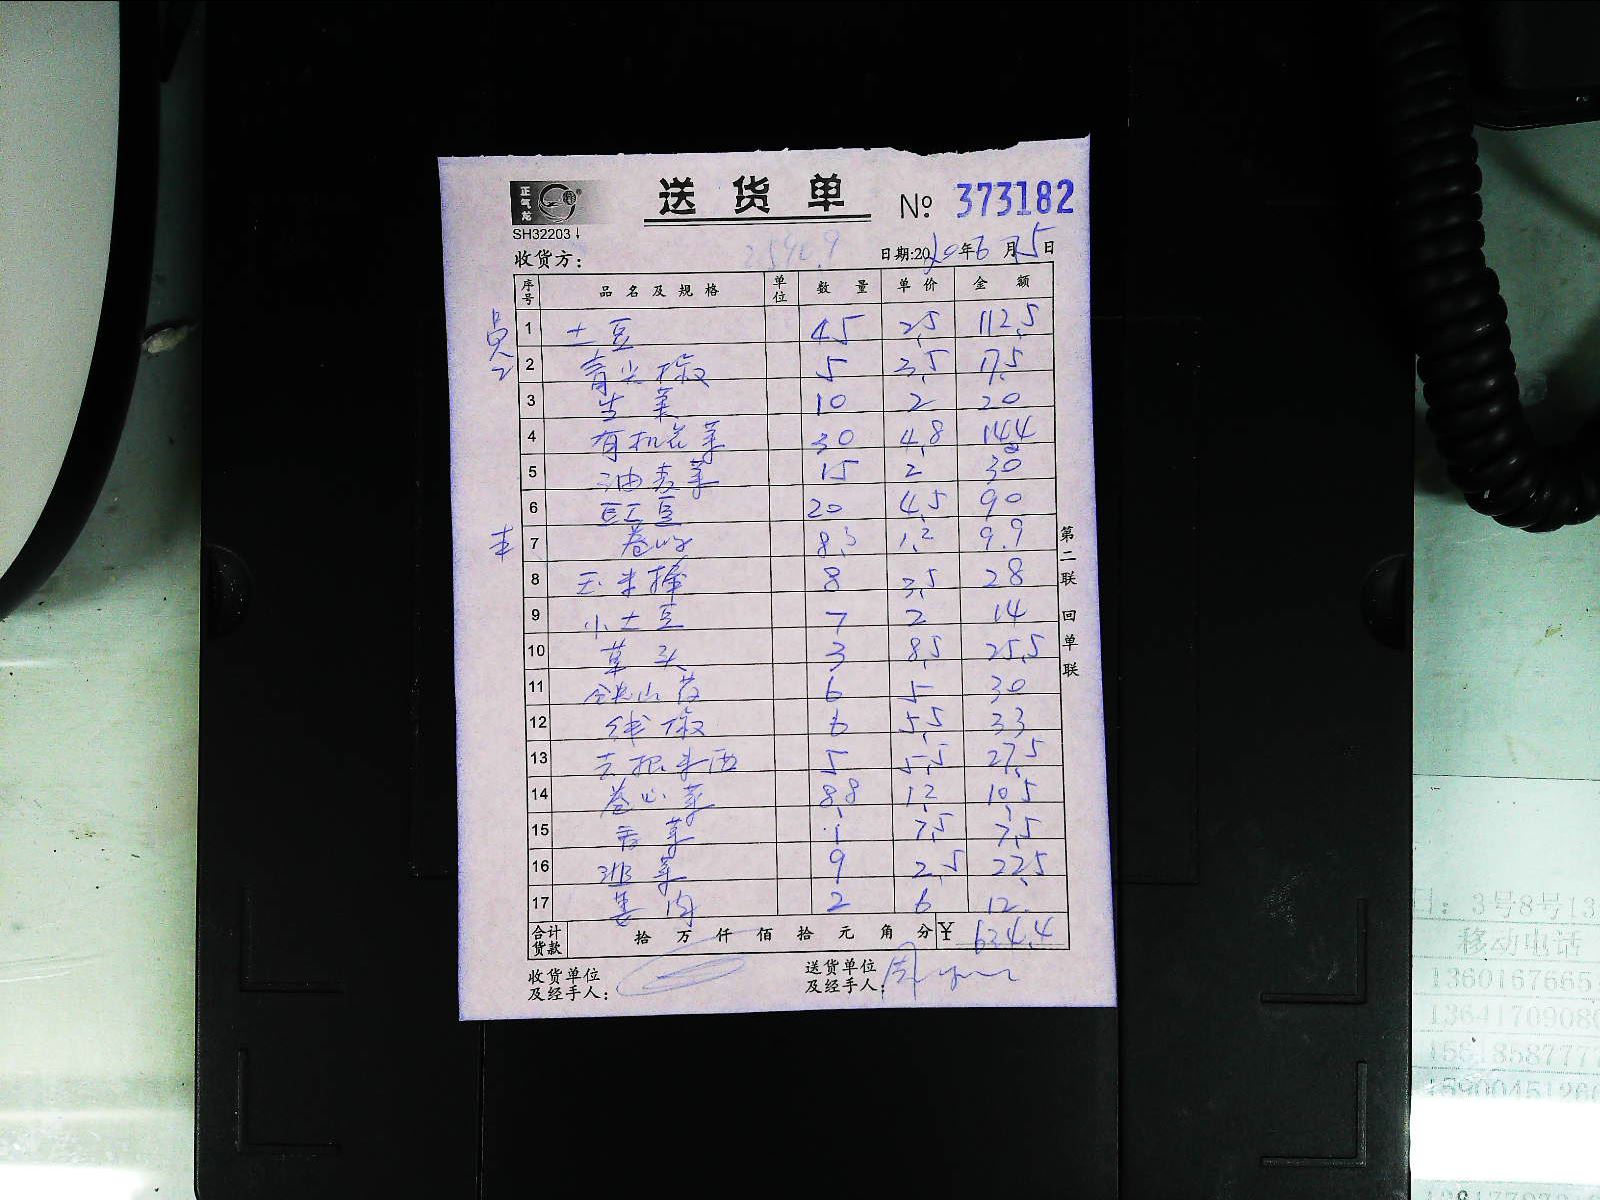 正气龙
SH32203
送货单 № 373182
收货方: 日期:2020年6月15日
序号 品名及规格 单位 数量 单价 金额
1 土豆 45 2.5 112.5
2 青尖椒 5 3.5 17.5
3 生菜 10 2 20
4 有机花菜 30 4.8 144
5 油麦菜 15 2 30
6 豇豆 20 4.5 90
7 卷心 8.3 1.2 9.9
8 玉米棒 8 3.5 28
9 小土豆 7 2 14
10 草头 3 8.5 25.5
11 铁山药 6 5 30
12 线椒 6 5.5 33
13 去根米西 5 5.5 27.5
14 卷心菜 8.8 1.2 10.5
15 香菜 1 7.5 7.5
16 9 2.5 22.5
17 姜肉 2 6 12
合计货款 拾 万 仟 佰 拾 元 角 分 ¥ 634.4
收货单位及经手人: 送货单位及经手人:
第二联 回单联
3号8号13
移动电话
1360167665
1364170908